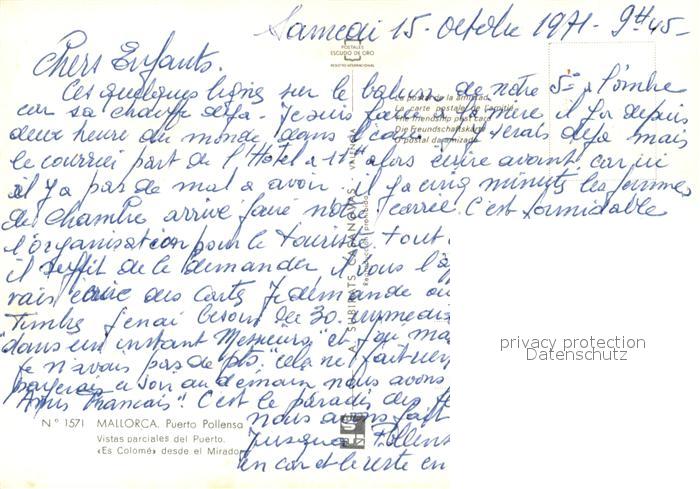 Samedi 15 Octobre 1971 - 9H45 -
POSTALES
ESCUDO DE ORO
REGISTRO INTERNACIONAL
Chers Enfants.
Ces quelques lignes sur le balcon de notre 5e à l'ombre
car sa chauffe déjà. Je suis face à la mer il y a depuis
deux heure du monde dans l'eau j'y serais déjà mais
le courrier part de l'Hotel à 11H alors écrire avant car ici
il y a pas de mal a avoir il y a cinq minuts les femmes
de chambre arrive faire notre carrée. C'est formidable
l'organisation pour le touriste tout
il suffit de le demander, il vous l'
vais écrire des cartes je demande
Timbres j'en ai besoin de 30. immedi
"dans un instant Messieurs" et
je n'avais pas de pts, "cela ne fait rien
payerais ce soir ou demain nous avons
Amis Francais" C'est le paradis des
nous avons fait
Jusqua Pollens
en car et le reste en
La postal de la amistad
La carte postale de l'amitié
The friendship post card
Die Freundschaftskarte
O postal da amizade
SUBIRATS CASANOVAS
VALENCIA
Reproducción prohibida
privacy protection
Datenschutz
N° 1571 MALLORCA. Puerto Pollensa
Vistas parciales del Puerto.
«Es Colomé» desde el Mirador